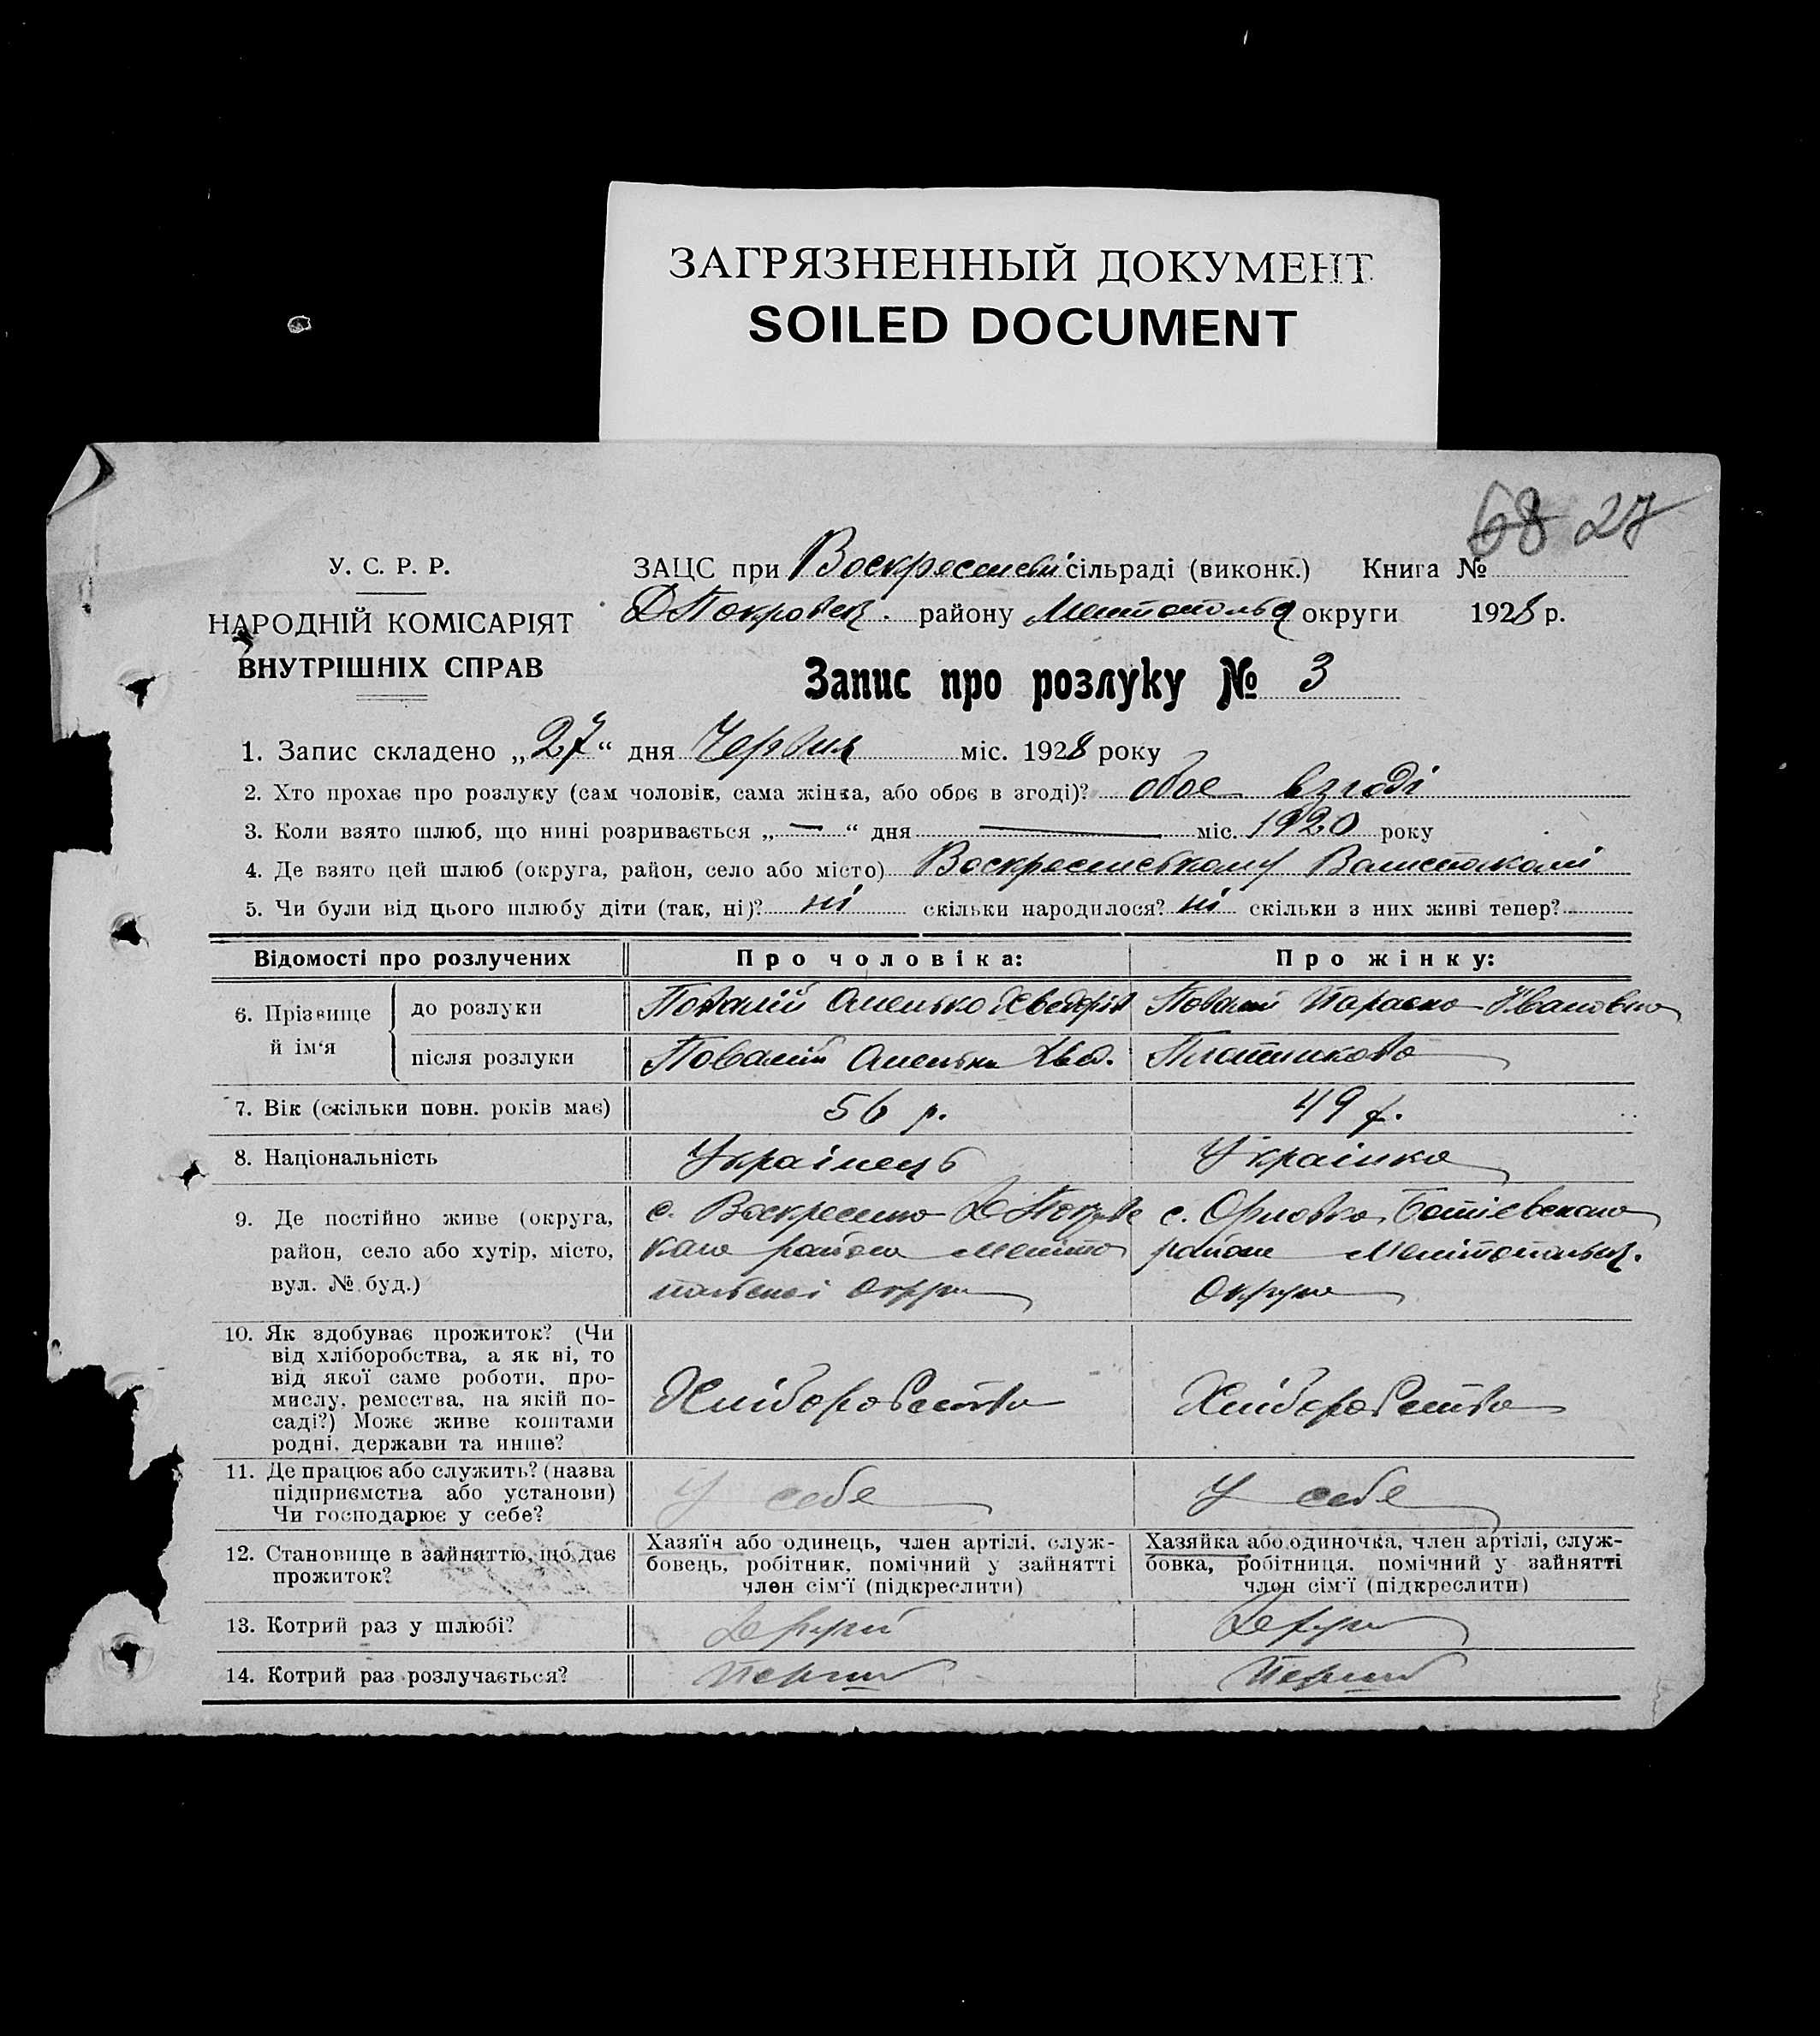 ЗАГРЯЗНЕННЫЙ ДОКУМЕНТ
SOILED DOCUMENT
68 27
У. С. Р. Р.
НАРОДНІЙ КОМІСАРІЯТ
ВНУТРІШНІХ СПРАВ
ЗАЦС при Воскресенській сільраді (виконк.) Книга №
району округи 1928 р.
Запис про розлуку № 3
1. Запис складено „27“ дня Червня міс. 1928 року
2. Хто прохає про розлуку (сам чоловік, сама жінка, або обоє в згоді)? обоє в згоді
3. Коли взято шлюб, що нині розривається „—“ дня — міс. 1920 року
4. Де взято цей шлюб (округа, район, село або місто) Воскресенському
5. Чи були від цього шлюбу діти (так, ні)? ні скільки народилося? ні скільки з них живі тепер?
Відомості про розлучених
Про чоловіка:
Про жінку:
6. Прізвище й ім‘я
до розлуки
Повалій
Повалій Параска Ивановна
після розлуки
Повалій
Плотникова
7. Вік (скільки повн. років має)
56 р.
49 р.
8. Національність
Українець
Українка
9. Де постійно живе (округа,
район, село або хутір, місто,
вул. № буд.)
с. Воскресенка
району Меліто
польської округи
с. Орловка, Ботієвського
району Мелітопольськ.
округи
10. Як здобуває прожиток? (Чи
від хліборобства, а як ні, то
від якої саме роботи, про-
мислу, ремества, на якій по-
саді?) Може живе коштами
родні, держави та инше?
Хліборобство
Хліборобство
11. Де працює або служить? (назва
підприємства або установи)
Чи господарює у себе?
У себе
У себе
12. Становище в зайняттю, що дає
прожиток?
Хазяїн або одинець, член артілі, служ-
бовець, робітник, помічний у зайнятті
член сім‘ї (підкреслити)
Хазяйка або одиночка, член артілі, служ-
бовка, робітниця, помічний у зайнятті
член сім‘ї (підкреслити)
13. Котрий раз у шлюбі?
Другий
Други
14. Котрий раз розлучається?
Перший
Перший